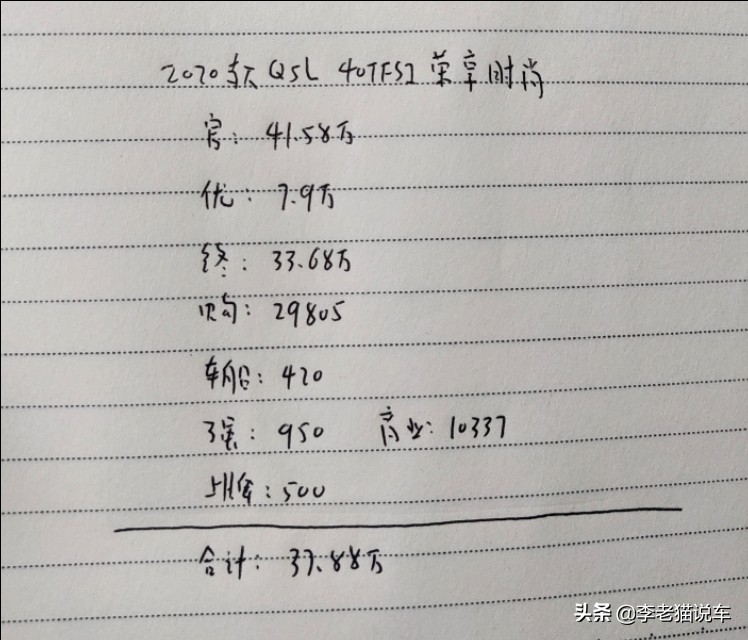 2020款 Q5L 40TFSI 荣享时尚
官: 41.58万
优: 7.9万
终: 33.68万
购: 29805
车船: 420
交强: 950 商业: 10337
上牌: 500
合计: 37.88万
头条 @李老猫说车